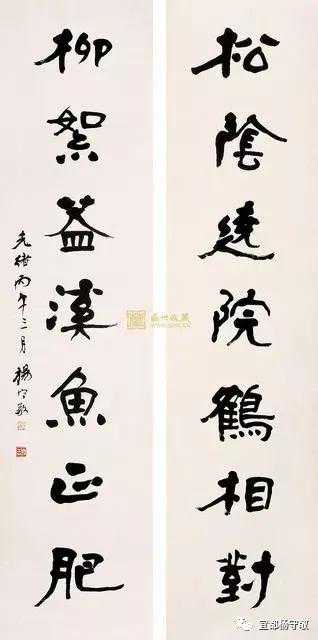 松陰遶院鶴相對
柳絮葢溪魚正肥
光緒丙午三月楊守敬
盛世收藏
宜都杨守敬